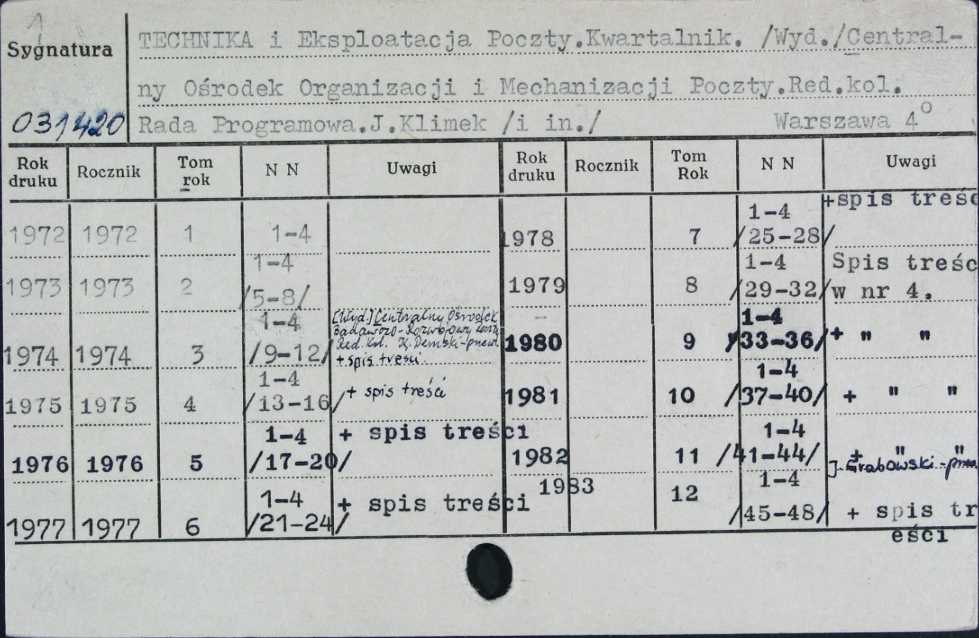 1
Sygnatura
TECHNIKA i Eksploatacja Poczty.Kwartalnik. /Wyd./Central-
ny Ośrodek Organizacji i Mechanizacji Poczty.Red.kol.
031420 Rada Programowa.J.Klimek /i in./ Warszawa 4°
Rok druku Rocznik Tom rok N N Uwagi Rok druku Rocznik Tom Rok N N Uwagi
1972 1972 1 1-4
1973 1973 2 1-4 /5-8/
1974 1974 3 1-4 /9-12/ [Wyd.] Centralny Ośrodek
Badawczo-Rozwojowy
Red. kol. K. Demski-
+ spis treści
1975 1975 4 1-4 /13-16/ + spis treści
1976 1976 5 1-4 /17-20/ + spis treści
1977 1977 6 1-4 /21-24/ + spis treści
1978 7 1-4 /25-28/ +spis treśc
1979 8 1-4 /29-32/ Spis treśc
w nr 4.
1980 9 1-4 /33-36/ + " "
1981 10 1-4 /37-40/ + " "
1982 11 1-4 /41-44/ + " "
J. Grabowski-
1983 12 1-4 /45-48/ + spis tr
eści